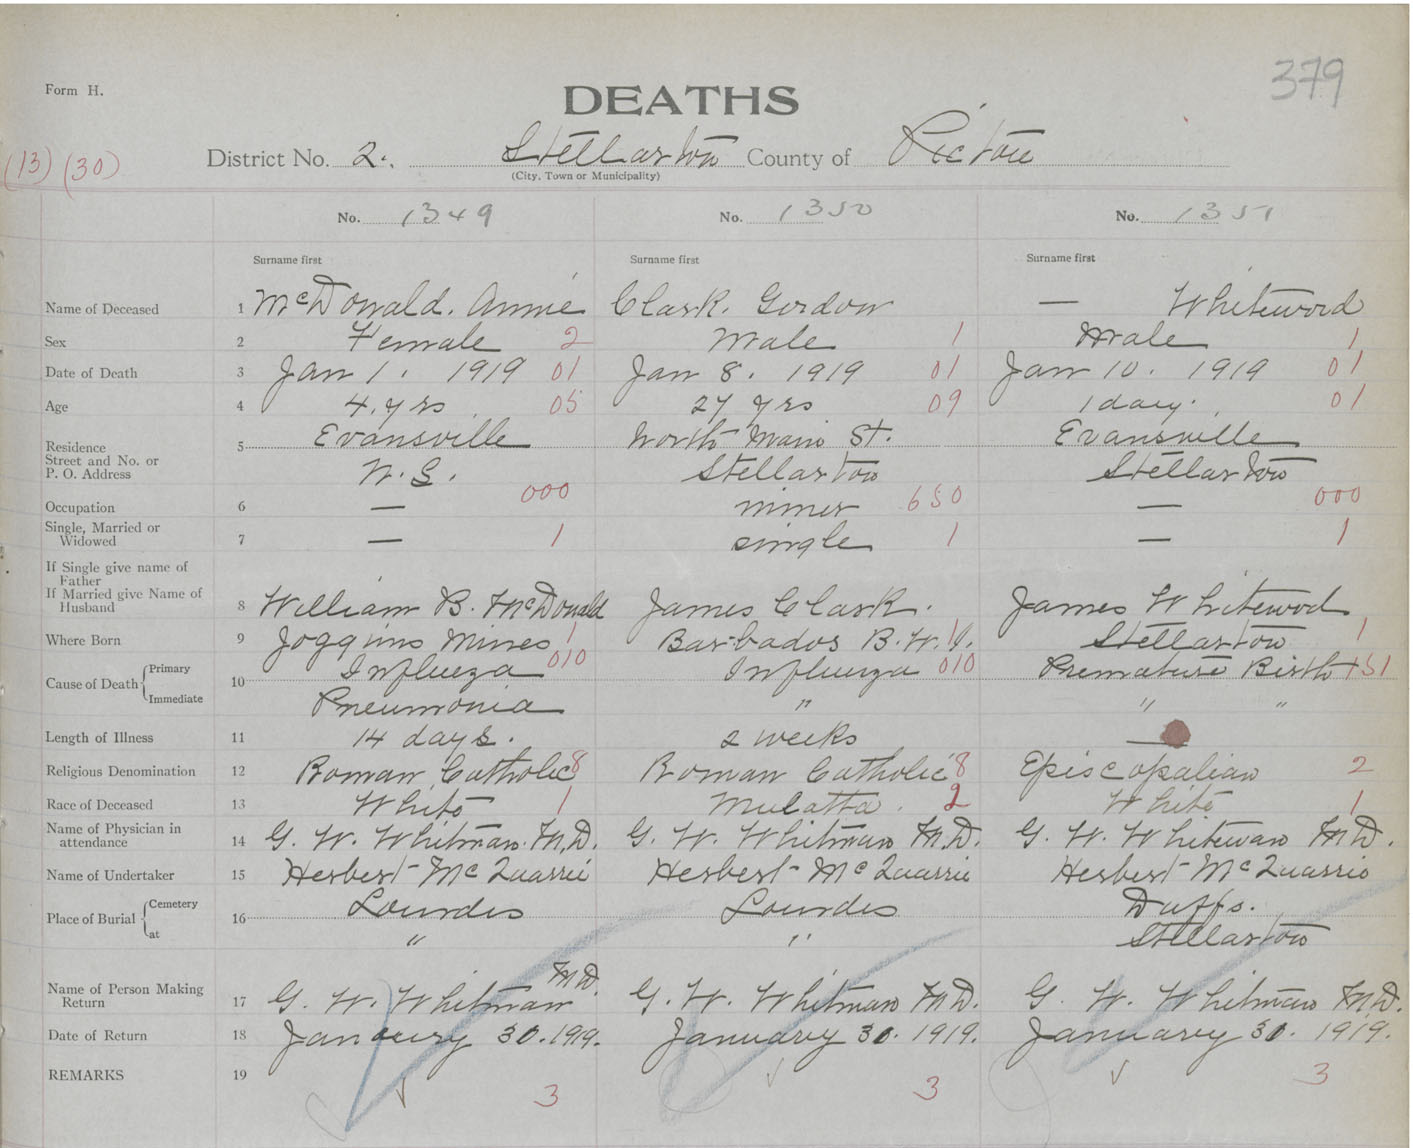 379
Form H.
DEATHS
(13) (30)
District No. 2. Stellarton County of Pictou
(City, Town or Municipality)
No. 1349 No. 1350 No. 1351
Surname first Surname first Surname first
Name of Deceased 1 McDonald. Annie Clark. Gordon — Whitewood
Sex 2 Female 2 Male 1 Male 1
Date of Death 3 Jan 1. 1919 01 Jan 8. 1919 01 Jan 10. 1919 01
Age 4 4 yrs 05 27 yrs 09 1 day. 01
Residence 5 Evansville North Main St. Evansville
Street and No. or
P. O. Address N.S. Stellarton Stellarton
Occupation 6 — 000 miner 650 — 000
Single, Married or
Widowed 7 — 1 single 1 — 1
If Single give name of
Father
If Married give Name of
Husband 8 William B. McDonald James Clark. James Whitewood
Where Born 9 Joggins Mines 1 Barbados B.W.I. Stellarton 1
Cause of Death 10 Primary Influenza 010 Influenza 010 Premature Birth 151
Immediate Pneumonia " " "
Length of Illness 11 14 days. 2 weeks —
Religious Denomination 12 Roman Catholic 8 Roman Catholic 8 Episcopalian 2
Race of Deceased 13 White 1 Mulatta. 2 White 1
Name of Physician in
attendance 14 G. W. Whitman. M.D. G. W. Whitman M.D. G. W. Whiteman M.D.
Name of Undertaker 15 Herbert McQuarrie Herbert McQuarrie Herbert McQuarrie
Place of Burial 16 Cemetery Lourdes Lourdes Duffs.
at " " Stellarton
Name of Person Making
Return 17 G. W. Whitman M.D. G. W. Whitman M.D. G. W. Whitman M.D.
Date of Return 18 January 30. 1919. January 30. 1919. January 30. 1919.
REMARKS 19 3 3 3